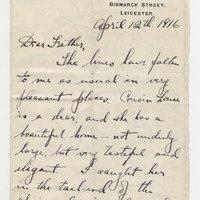 BISMARCK STREET,
LEICESTER.
April 12th 1916
Dear Father,
The lines have fallen
to me as usual in very
pleasant places. Cousin
is a dear, and she has a
beautiful home – not unduly
large, but very tasteful and
elegant. I caught her
in the tail end of the